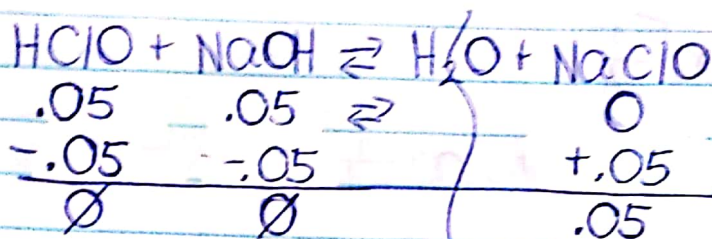 HClO + NaOH ⇌ H₂O + NaClO
.05 .05 ⇌ 0
-.05 -.05 +.05
Ø Ø .05